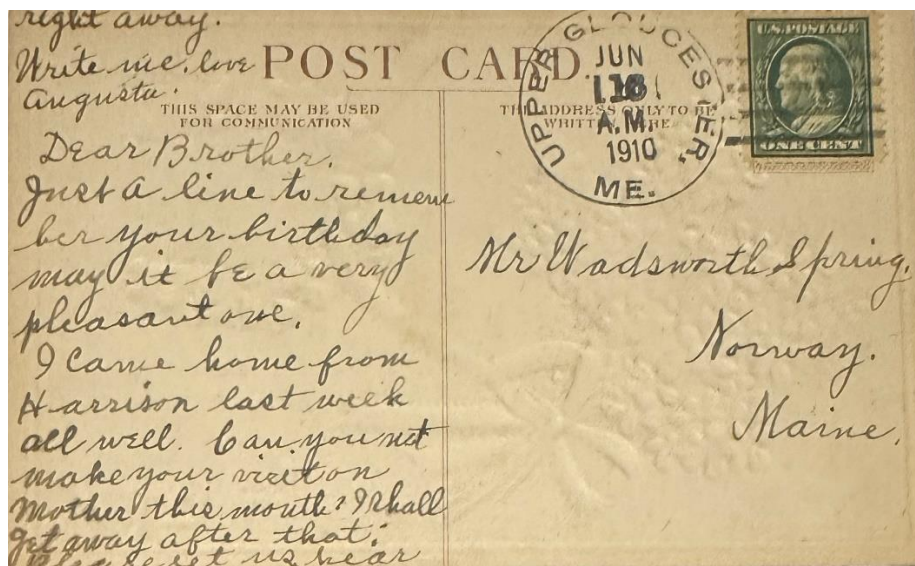 right away.
Write me. love
Augusta.
POST CARD
THIS SPACE MAY BE USED
FOR COMMUNICATION
THE ADDRESS ONLY TO BE
WRITTEN HERE
UPPER GLOUCESTER,
JUN
A.M.
1910
ME.
U.S. POSTAGE
ONE CENT
Dear Brother.
Just a line to remem
ber your birthday
may it be a very
pleasant one.
I came home from
Harrison last week
all well. Can you not
make your visit on
Mother this month? I shall
get away after that.
Please let us hear
Mr Wadsworth Spring.
Norway.
Maine.